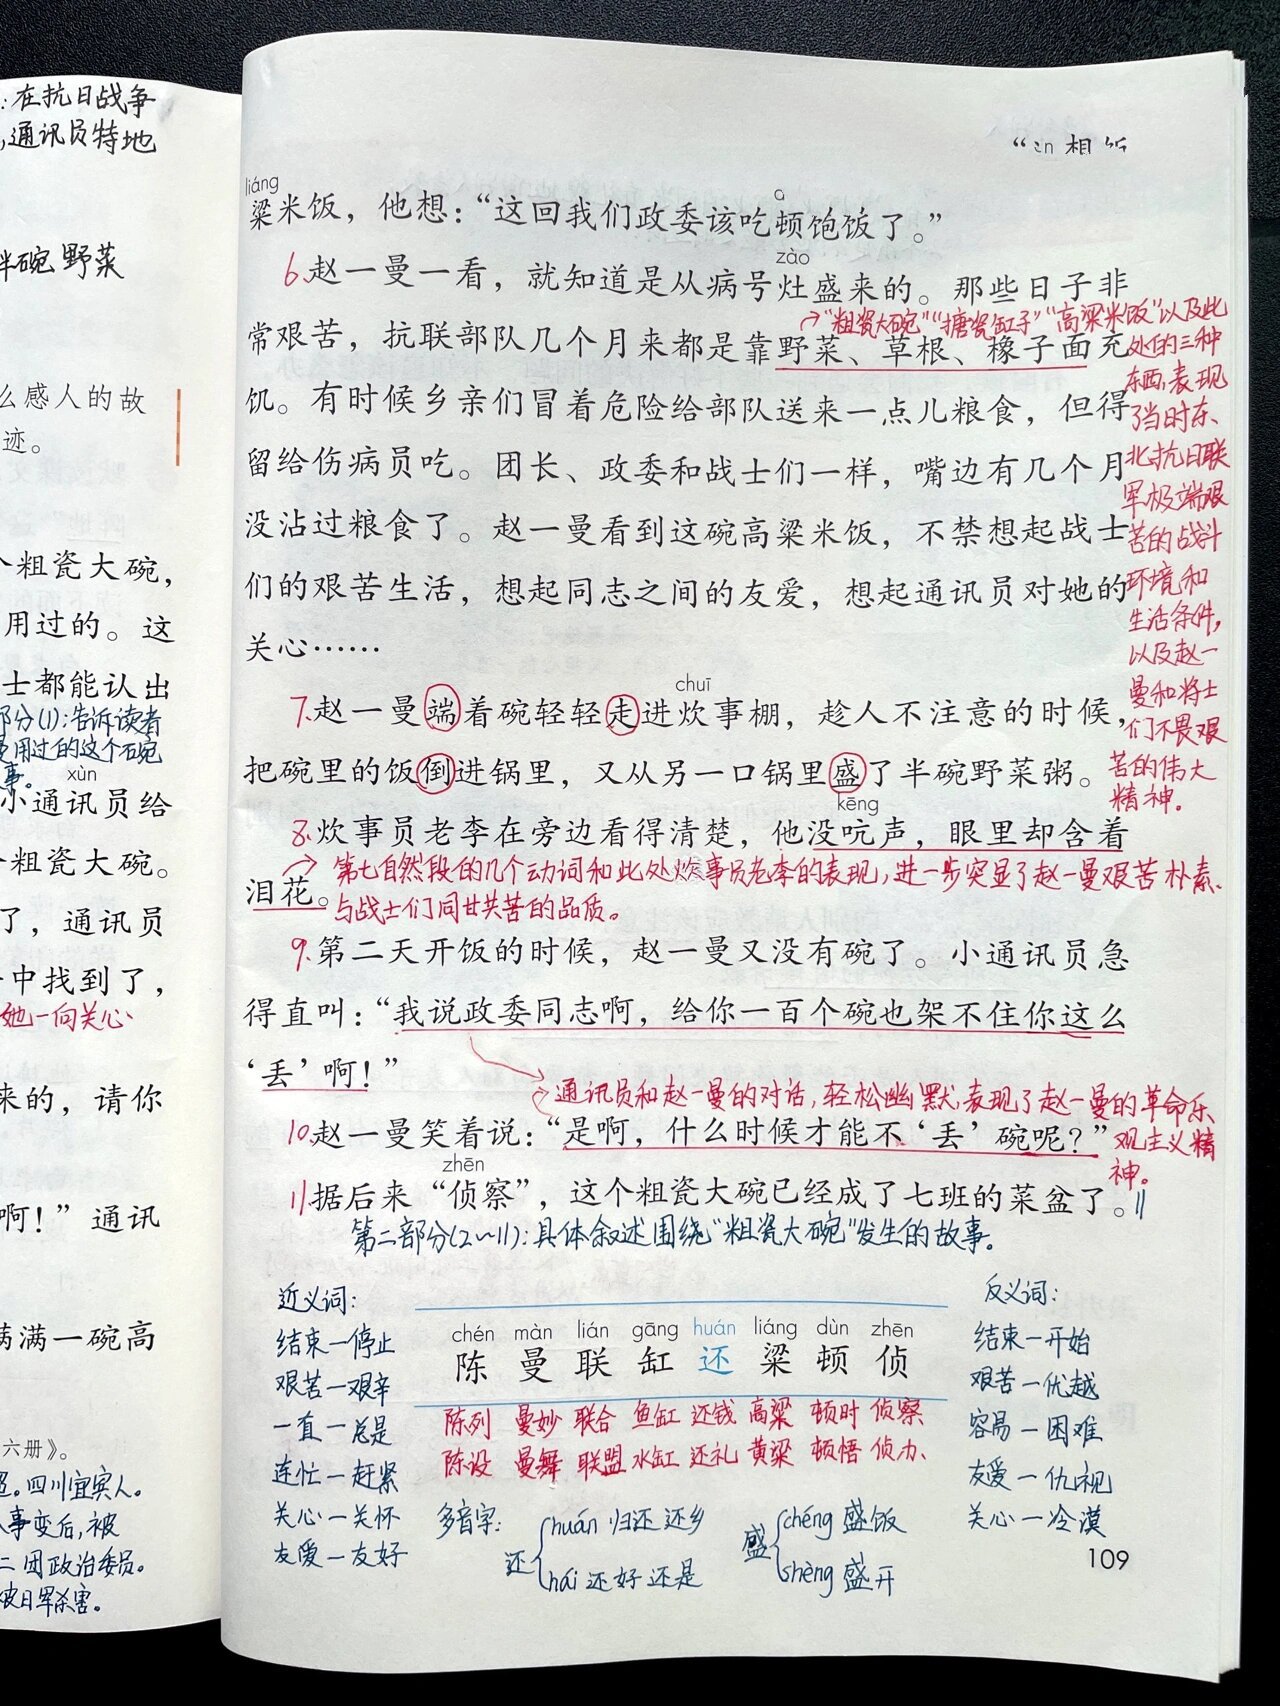 ：在抗日战争
，通讯员特地
半碗野菜
么感人的故
迹。
个粗瓷大碗，
用过的。这
士都能认出
部分(1)：告诉读者
曼用过的这个碗
事。
xùn
小通讯员给
个粗瓷大碗。
了，通讯员
中找到了，
她一向关心
来的，请你
啊！”通讯
满满一碗高
六册》。
四川宜宾人。
事变后，被
二团政治委员。
被日军杀害。
liáng
粱米饭，他想：“这回我们政委该吃顿饱饭了。”
zào
6.赵一曼一看，就知道是从病号灶盛来的。那些日子非
常艰苦，抗联部队几个月来都是靠野菜、草根、橡子面充
饥。有时候乡亲们冒着危险给部队送来一点儿粮食，但得
留给伤病员吃。团长、政委和战士们一样，嘴边有几个月
没沾过粮食了。赵一曼看到这碗高粱米饭，不禁想起战士
们的艰苦生活，想起同志之间的友爱，想起通讯员对她的
关心……
“粗瓷大碗”“搪瓷缸子”“高粱米饭”以及此
处的三种
东西，表现
了当时东
北抗日联
军极端艰
苦的战斗
环境和
生活条件，
以及赵一
曼和将士
们不畏艰
苦的伟大
精神。
chuī
7.赵一曼端着碗轻轻走进炊事棚，趁人不注意的时候，
把碗里的饭倒进锅里，又从另一口锅里盛了半碗野菜粥。
kēng
8.炊事员老李在旁边看得清楚，他没吭声，眼里却含着
泪花。
第七自然段的几个动词和此处炊事员老李的表现，进一步突显了赵一曼艰苦朴素、
与战士们同甘共苦的品质。
9.第二天开饭的时候，赵一曼又没有碗了。小通讯员急
得直叫：“我说政委同志啊，给你一百个碗也架不住你这么
‘丢’啊！”
通讯员和赵一曼的对话，轻松幽默，表现了赵一曼的革命乐
观主义精
神。
10.赵一曼笑着说：“是啊，什么时候才能不‘丢’碗呢？”
zhēn
11.据后来“侦察”，这个粗瓷大碗已经成了七班的菜盆了。‖
第二部分(2~11)：具体叙述围绕“粗瓷大碗”发生的故事。
近义词：
结束—停止
艰苦—艰辛
一直—总是
连忙—赶紧
关心—关怀
友爱—友好
chén màn lián gāng huán liáng dùn zhēn
陈 曼 联 缸 还 粱 顿 侦
陈列 曼妙 联合 鱼缸 还钱 高粱 顿时 侦察
陈设 曼舞 联盟 水缸 还礼 黄粱 顿悟 侦办
反义词：
结束—开始
艰苦—优越
容易—困难
友爱—仇视
关心—冷漠
多音字：
还
huán 归还 还乡
hái 还好 还是
盛
chéng 盛饭
shèng 盛开
109